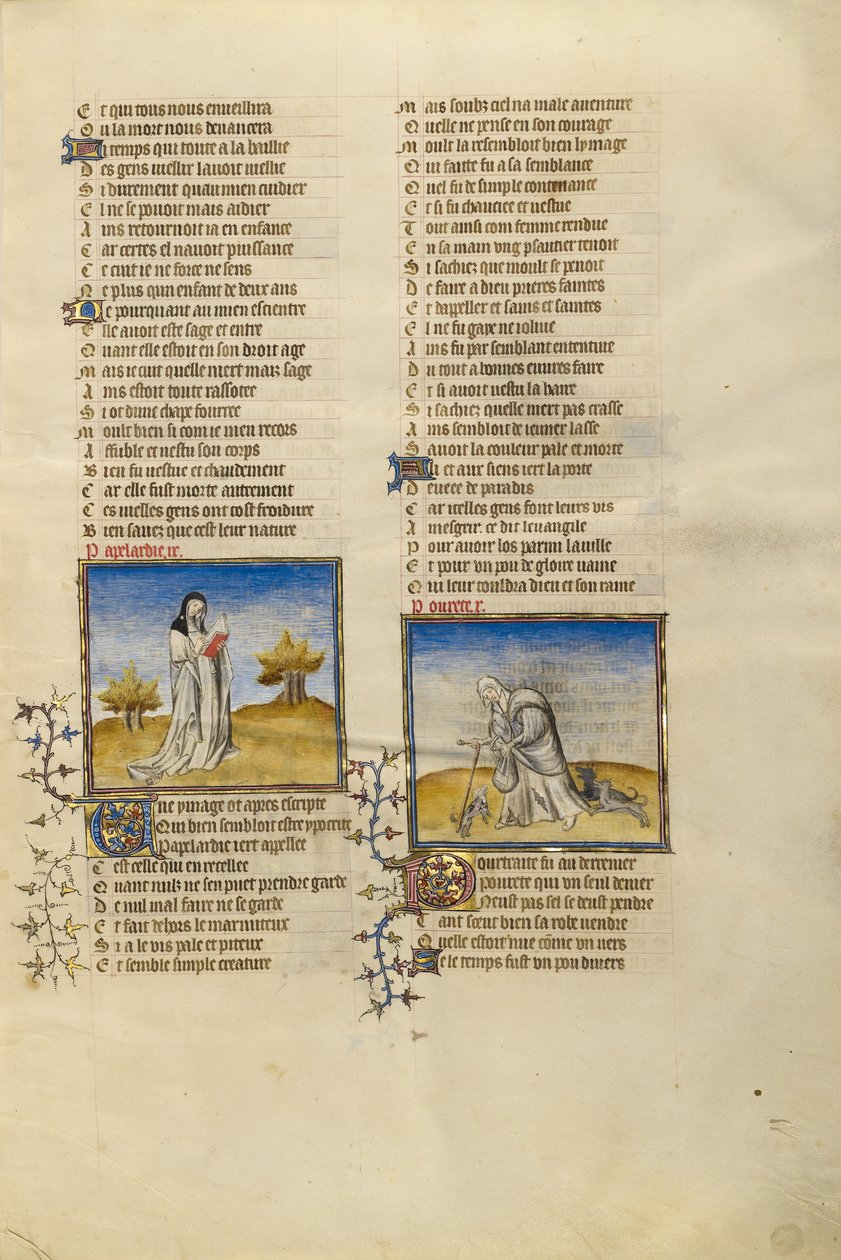 Et qui tous nous enveillira
Ou la mort nous devancera
Li temps qui toute a la baillie
Des gens viellir lavoit viellie
Si durement quau mien cuidier
El ne se povoit mais aidier
Ains retournoit ia en enfance
Car certes el navoit puissance
Ce cuit ie ne force ne sens
Ne plus qun enfant de deux ans
Ne pourquant au mien escientre
Elle avoit este sage et entre
Quant elle estoit en son droit age
Mais ie cuit quelle niert mais sage
Ains estoit toute rassotee
Si ot dune chape fourree
Moult bien si com ie men recors
Affuble et vestu son corps
Bien fu vestue et chaudement
Car elle fust morte autrement
Ces vielles gens ont tost froidure
Bien savez que cest leur nature
Papelardie .ix.
Une ymage ot apres escripte
Qui bien sembloit estre ypocrite
Papelardie iert appellee
Cest celle qui en recellee
Quant nulz ne sen puet prendre garde
De nul mal faire ne se garde
Et fait dehors le marmiteux
Si a le vis pale et piteux
Et semble simple creature
Mais soubz ciel na male aventure
Quelle ne pense en son courage
Moult la resembloit bien lymage
Qui faitte fu a sa semblance
Quel fu de simple contenance
Et si fu chauciee et vestue
Tout ainsi com femme rendue
En sa main ung psautier tenoit
Si sachiez que moult se penoit
De faire a dieu prieres faintes
Et dappeller et sains et saintes
El ne fu gaye ne iolive
Ains fu par semblant ententive
Du tout a bonnes euvres faire
Et si avoit vestu la haire
Si sachiez quelle niert pas crasse
Ains sembloit de ieuner lasse
Savoit la couleur pale et morte
Ali et aux siens iert la porte
Deveee de paradis
Car icelles gens font leurs vis
Amesgrir. ce dit leuangile
Pour avoir los parmi la ville
Et pour un pou de gloire vaine
Qui leur touldra dieu et son raine
Povrete .x.
Pourtraite fu au derrenier
Povrete qui un seul denier
Neust pas sel se deust pendre
Tant sceut bien sa robe vendre
Quelle estoit nue cõme un vers
Se le temps fust un pou divers